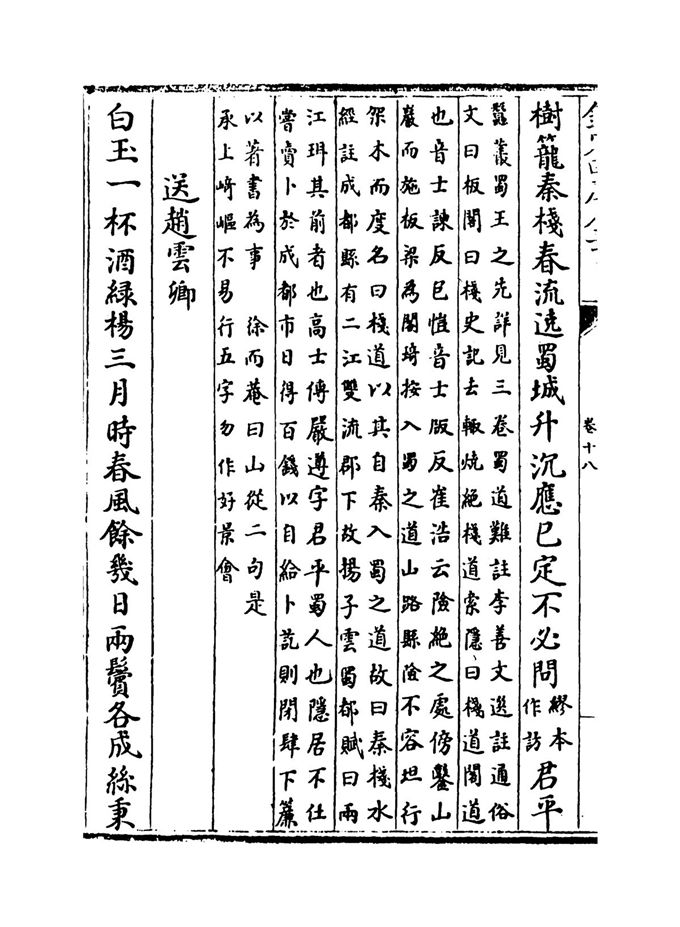 卷十八
樹籠秦棧春流遶蜀城升沉應已定不必問繆本作訪君平
蠶叢蜀王之先詳見三卷蜀道難註李善文選註通俗
文曰板閣曰棧史記去輙燒絶棧道索隱曰棧道閣道
也音士諫反已愷音士版反崔浩云險絶之處傍鑿山
巖而施板梁為閣琦按入蜀之道山路縣險不容坦行
架木而度名曰棧道以其自秦入蜀之道故曰秦棧水
經註成都縣有二江雙流郡下故揚子雲蜀都賦曰兩
江珥其前者也高士傳嚴遵字君平蜀人也隱居不仕
嘗賣卜於成都市日得百錢以自給卜訖則閉肆下簾
以著書為事 徐而菴曰山從二句是
承上崎嶇不易行五字勿作好景會
送趙雲卿
白玉一杯酒緑楊三月時春風餘幾日兩鬢各成絲秉